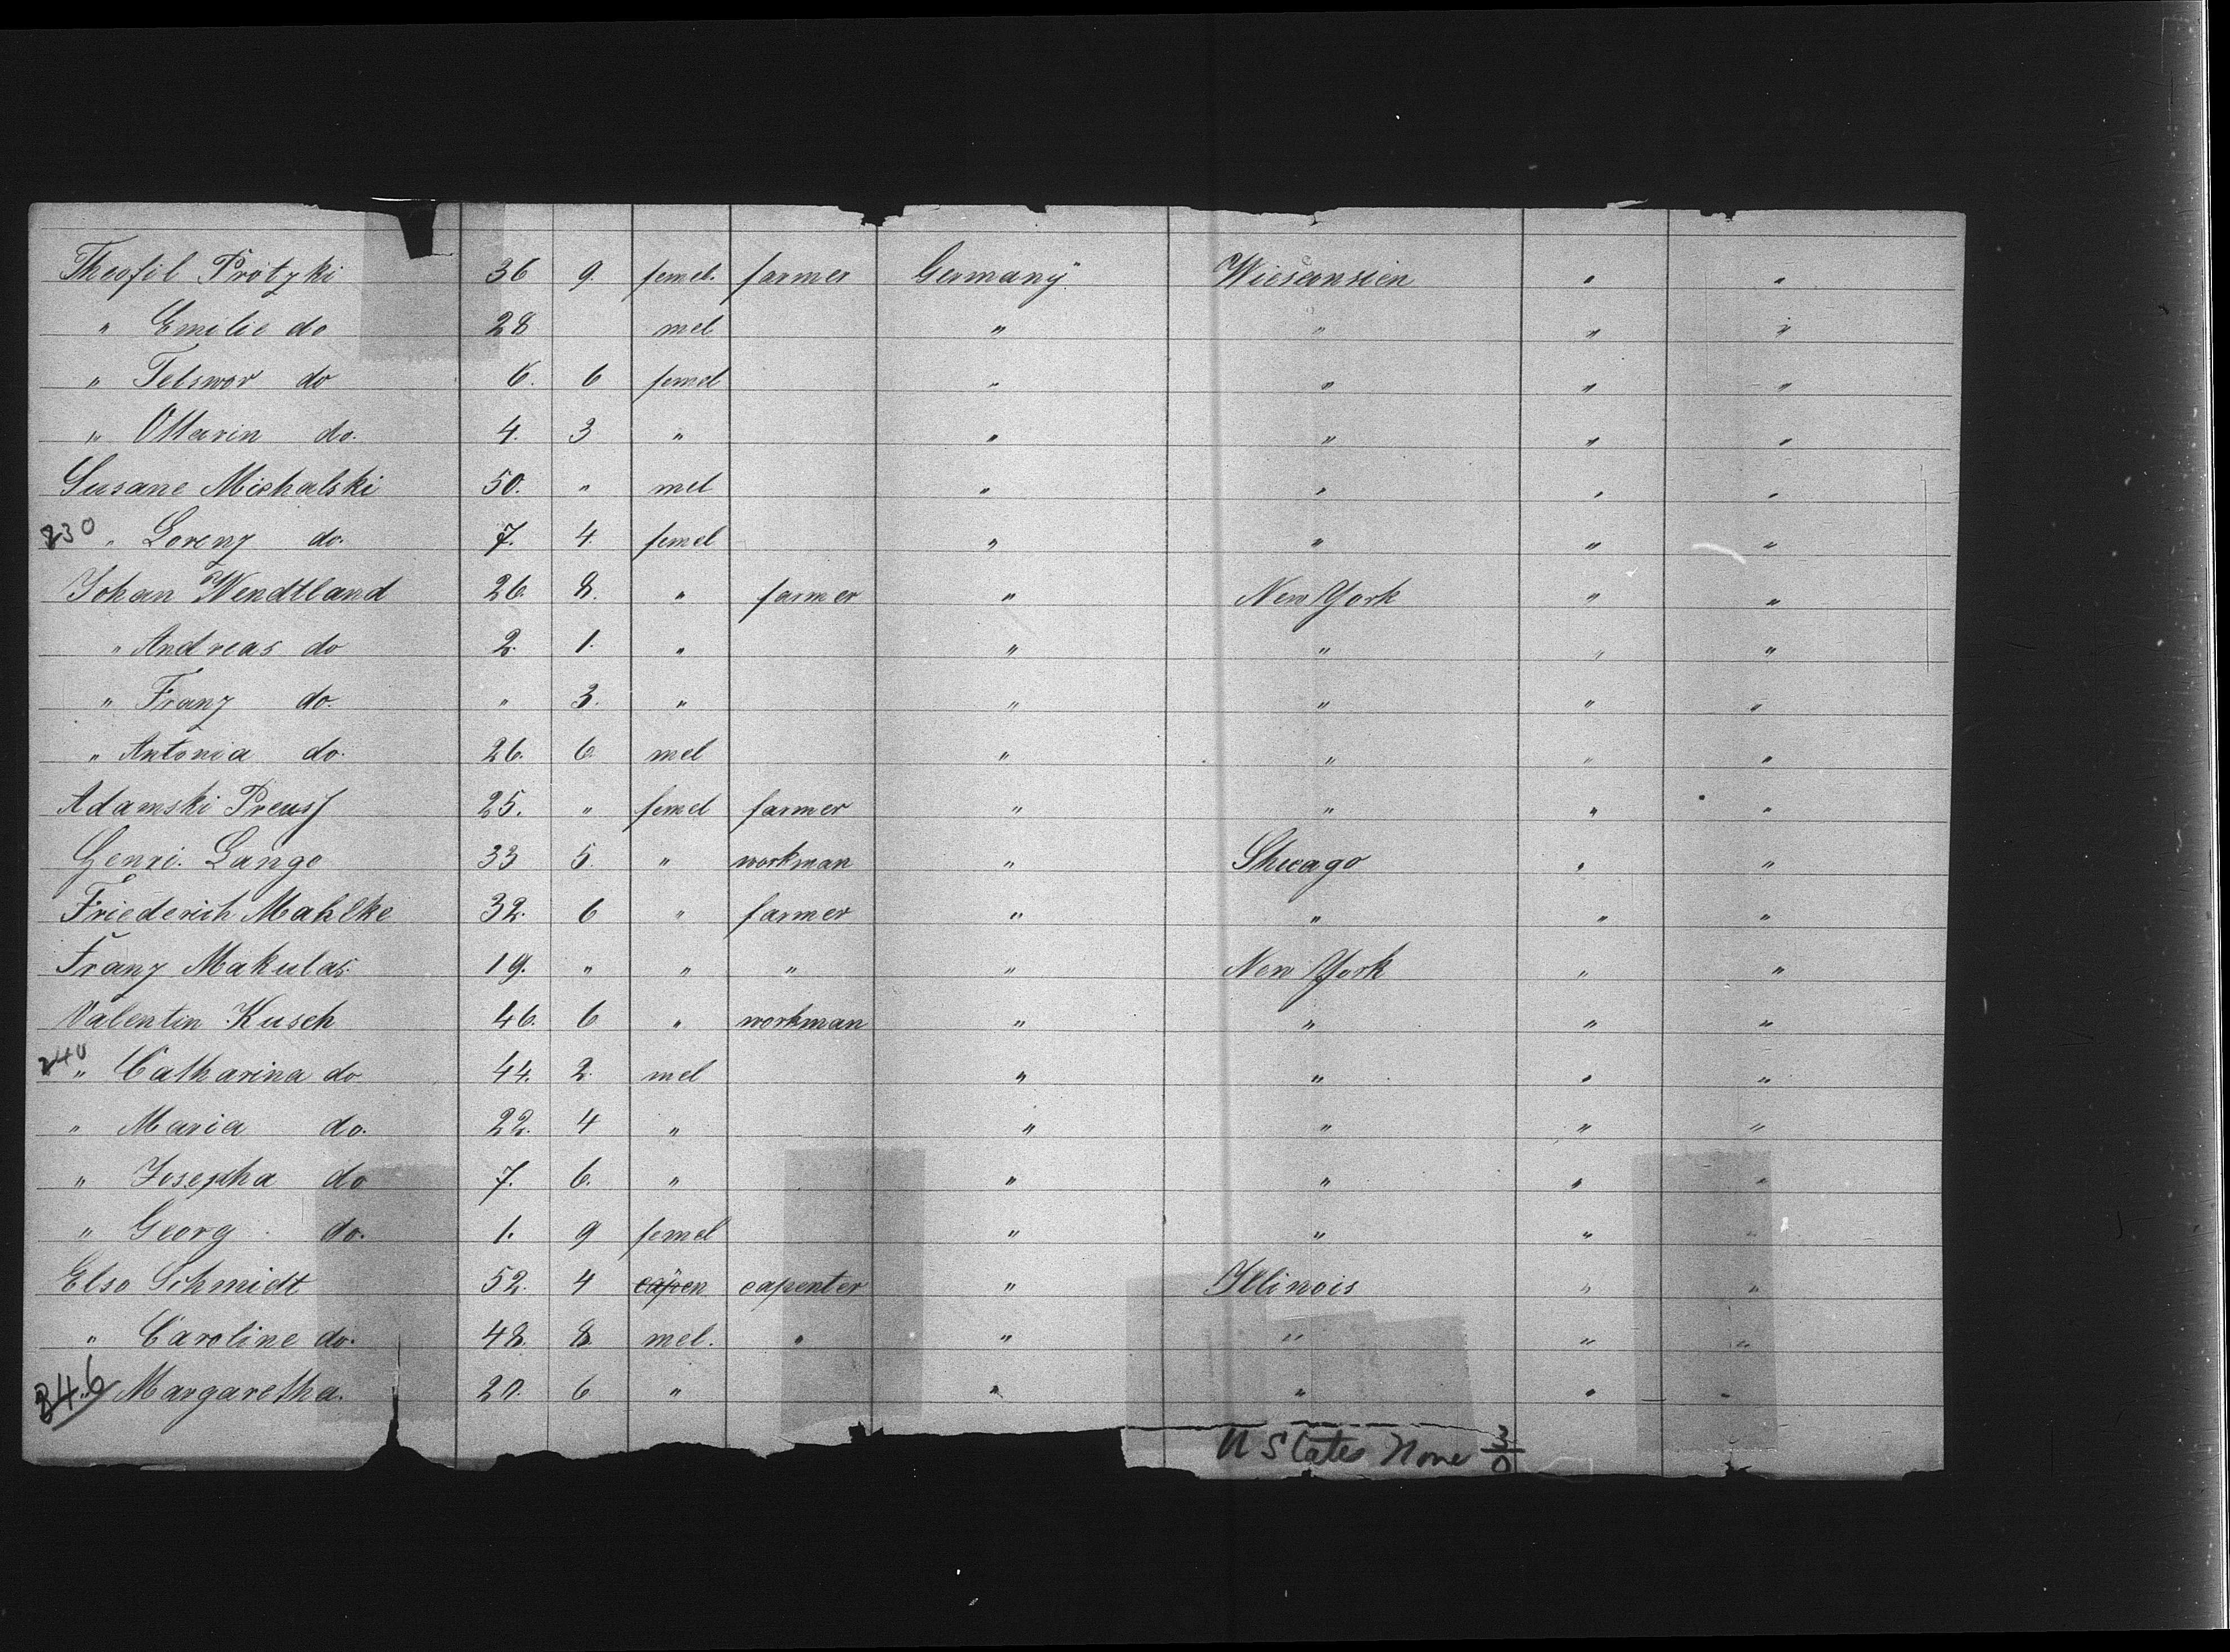 Theofil Protzki 36 9. femel. farmer Germany Wiesconsien " "
" Emilie do 28 mel " " " "
" Telswor do 6. 6 femel " " " "
" Ottavin do. 4. 3 " " " " "
Susane Michalski 50. " mel " " " "
230 " Lorenz do. 7. 4. femel " " " "
Johan Wendtland 26. 8. " farmer " New York " "
" Andreas do 2. 1. " " " " "
" Franz do. " 3. " " " " "
" Antonia do. 26. 6. mel " " " "
Adamski Preuss 25. " femel farmer " " " "
Henri. Lange 33 5. " workman " Shicago " "
Friederich Mahlke 32. 6 " farmer " " " "
Franz Makulas. 19. " " " " New York " "
Valentin Kusch 46. 6 " workman " " " "
240 " Catharina do 44. 2. mel " " " "
" Maria do. 22. 4 " " " " "
" Josepha do 7. 6. " " " " "
" Georg do. 1. 9 femel " " " "
Elso Schmidt 52. 4 capen capenter " Illinois " "
" Caroline do. 48. 8. mel. " " " " "
246 " Margaretha. 20. 6 " " " " "
U States None 3/0